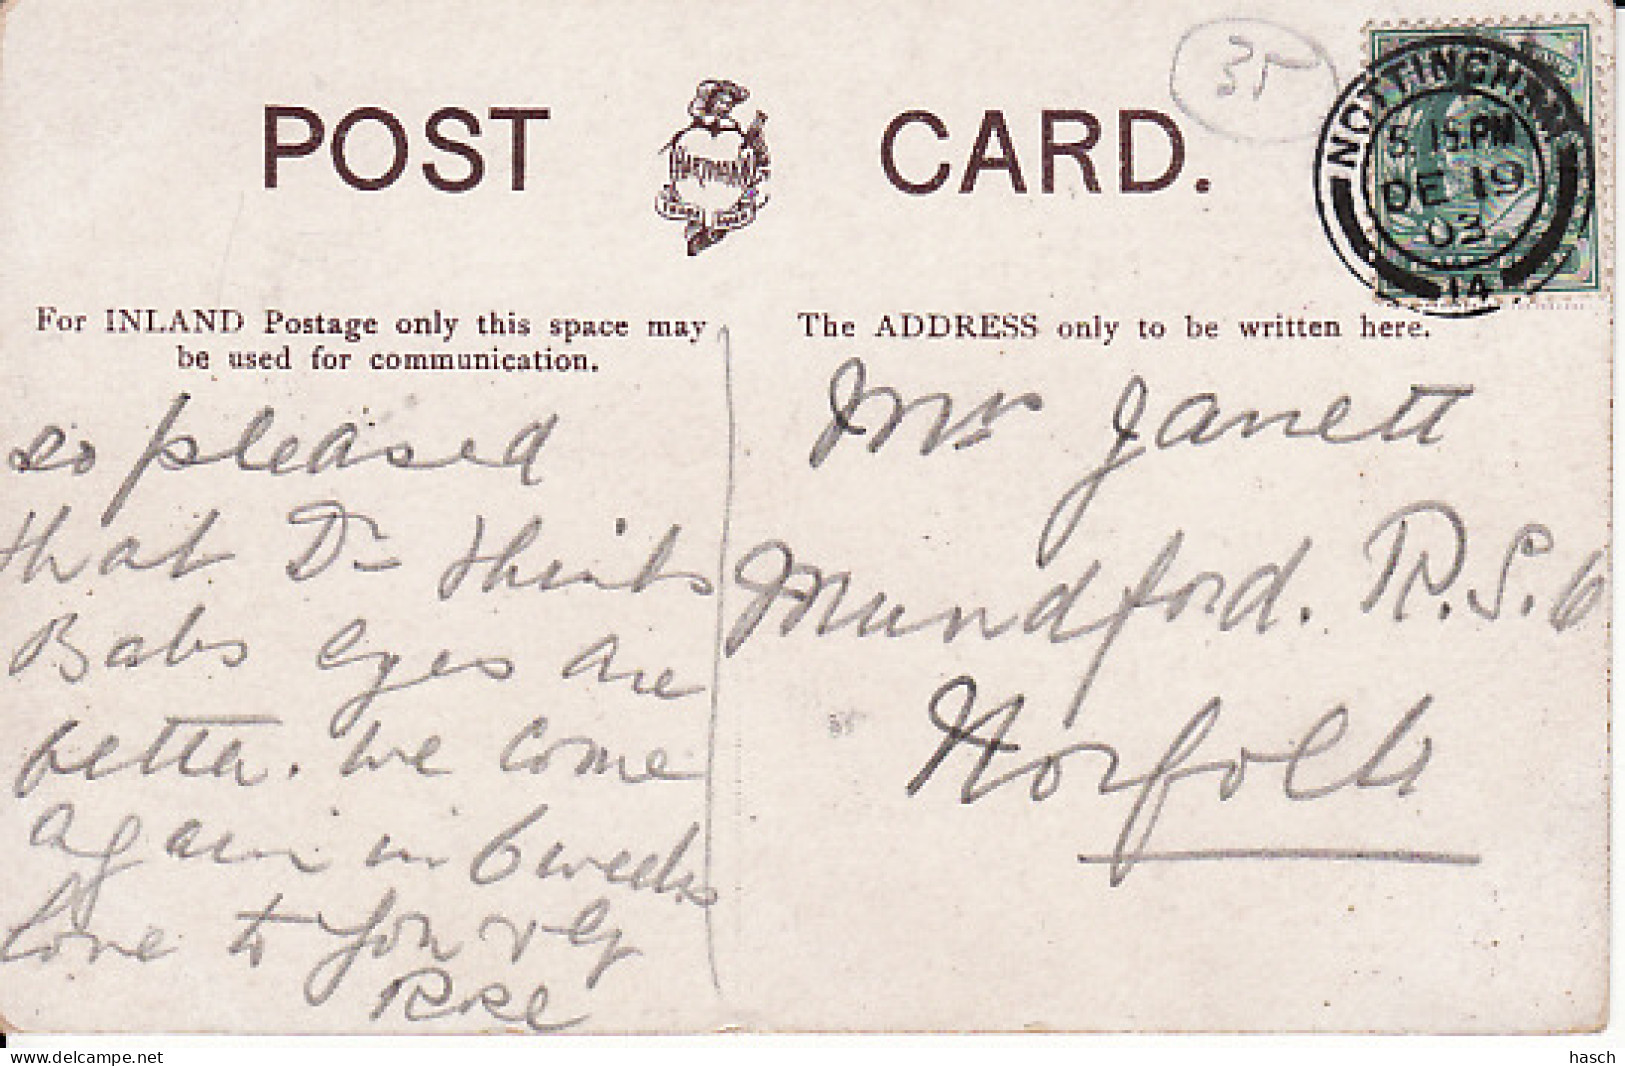 POST CARD.
HARTMANN
TRADE MARK
35
NOTTINGHAM
5.15.PM
DE 19
03
14
For INLAND Postage only this space may
be used for communication.
The ADDRESS only to be written here.
so pleased
that Dr thinks
Babs eyes are
better. We come
again in 6 weeks
love to you &
Mrs Janett
Mundford. R.S.O
Norfolk
Delcampe.net
hasch